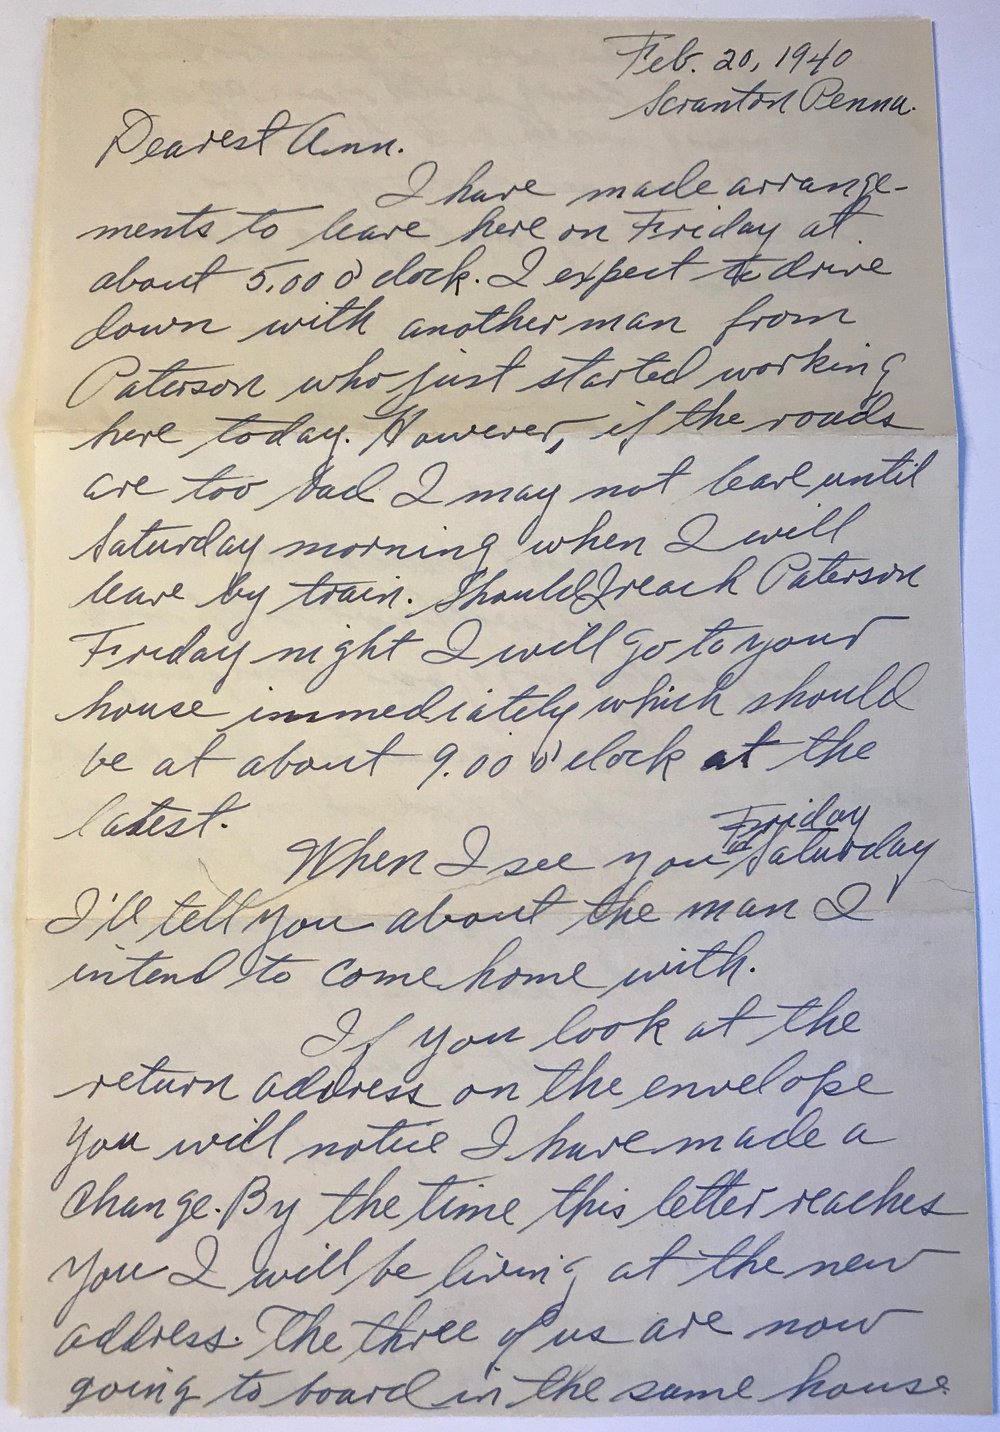 Feb. 20, 1940
Scranton Penna.
Dearest Ann.
I have made arrange-
ments to leave here on Friday at
about 5.00 o'clock. I expect to drive
down with another man from
Paterson who just started working
here today. However, if the roads
are too bad I may not leave until
Saturday morning when I will
leave by train. Should I reach Paterson
Friday night I will go to your
house immediately which should
be at about 9.00 o'clock at the
latest.
Friday
When I see you or Saturday
I'll tell you about the man I
intend to come home with.
If you look at the
return address on the envelope
you will notice I have made a
change. By the time this letter reaches
you I will be living at the new
address. The three of us are now
going to board in the same house